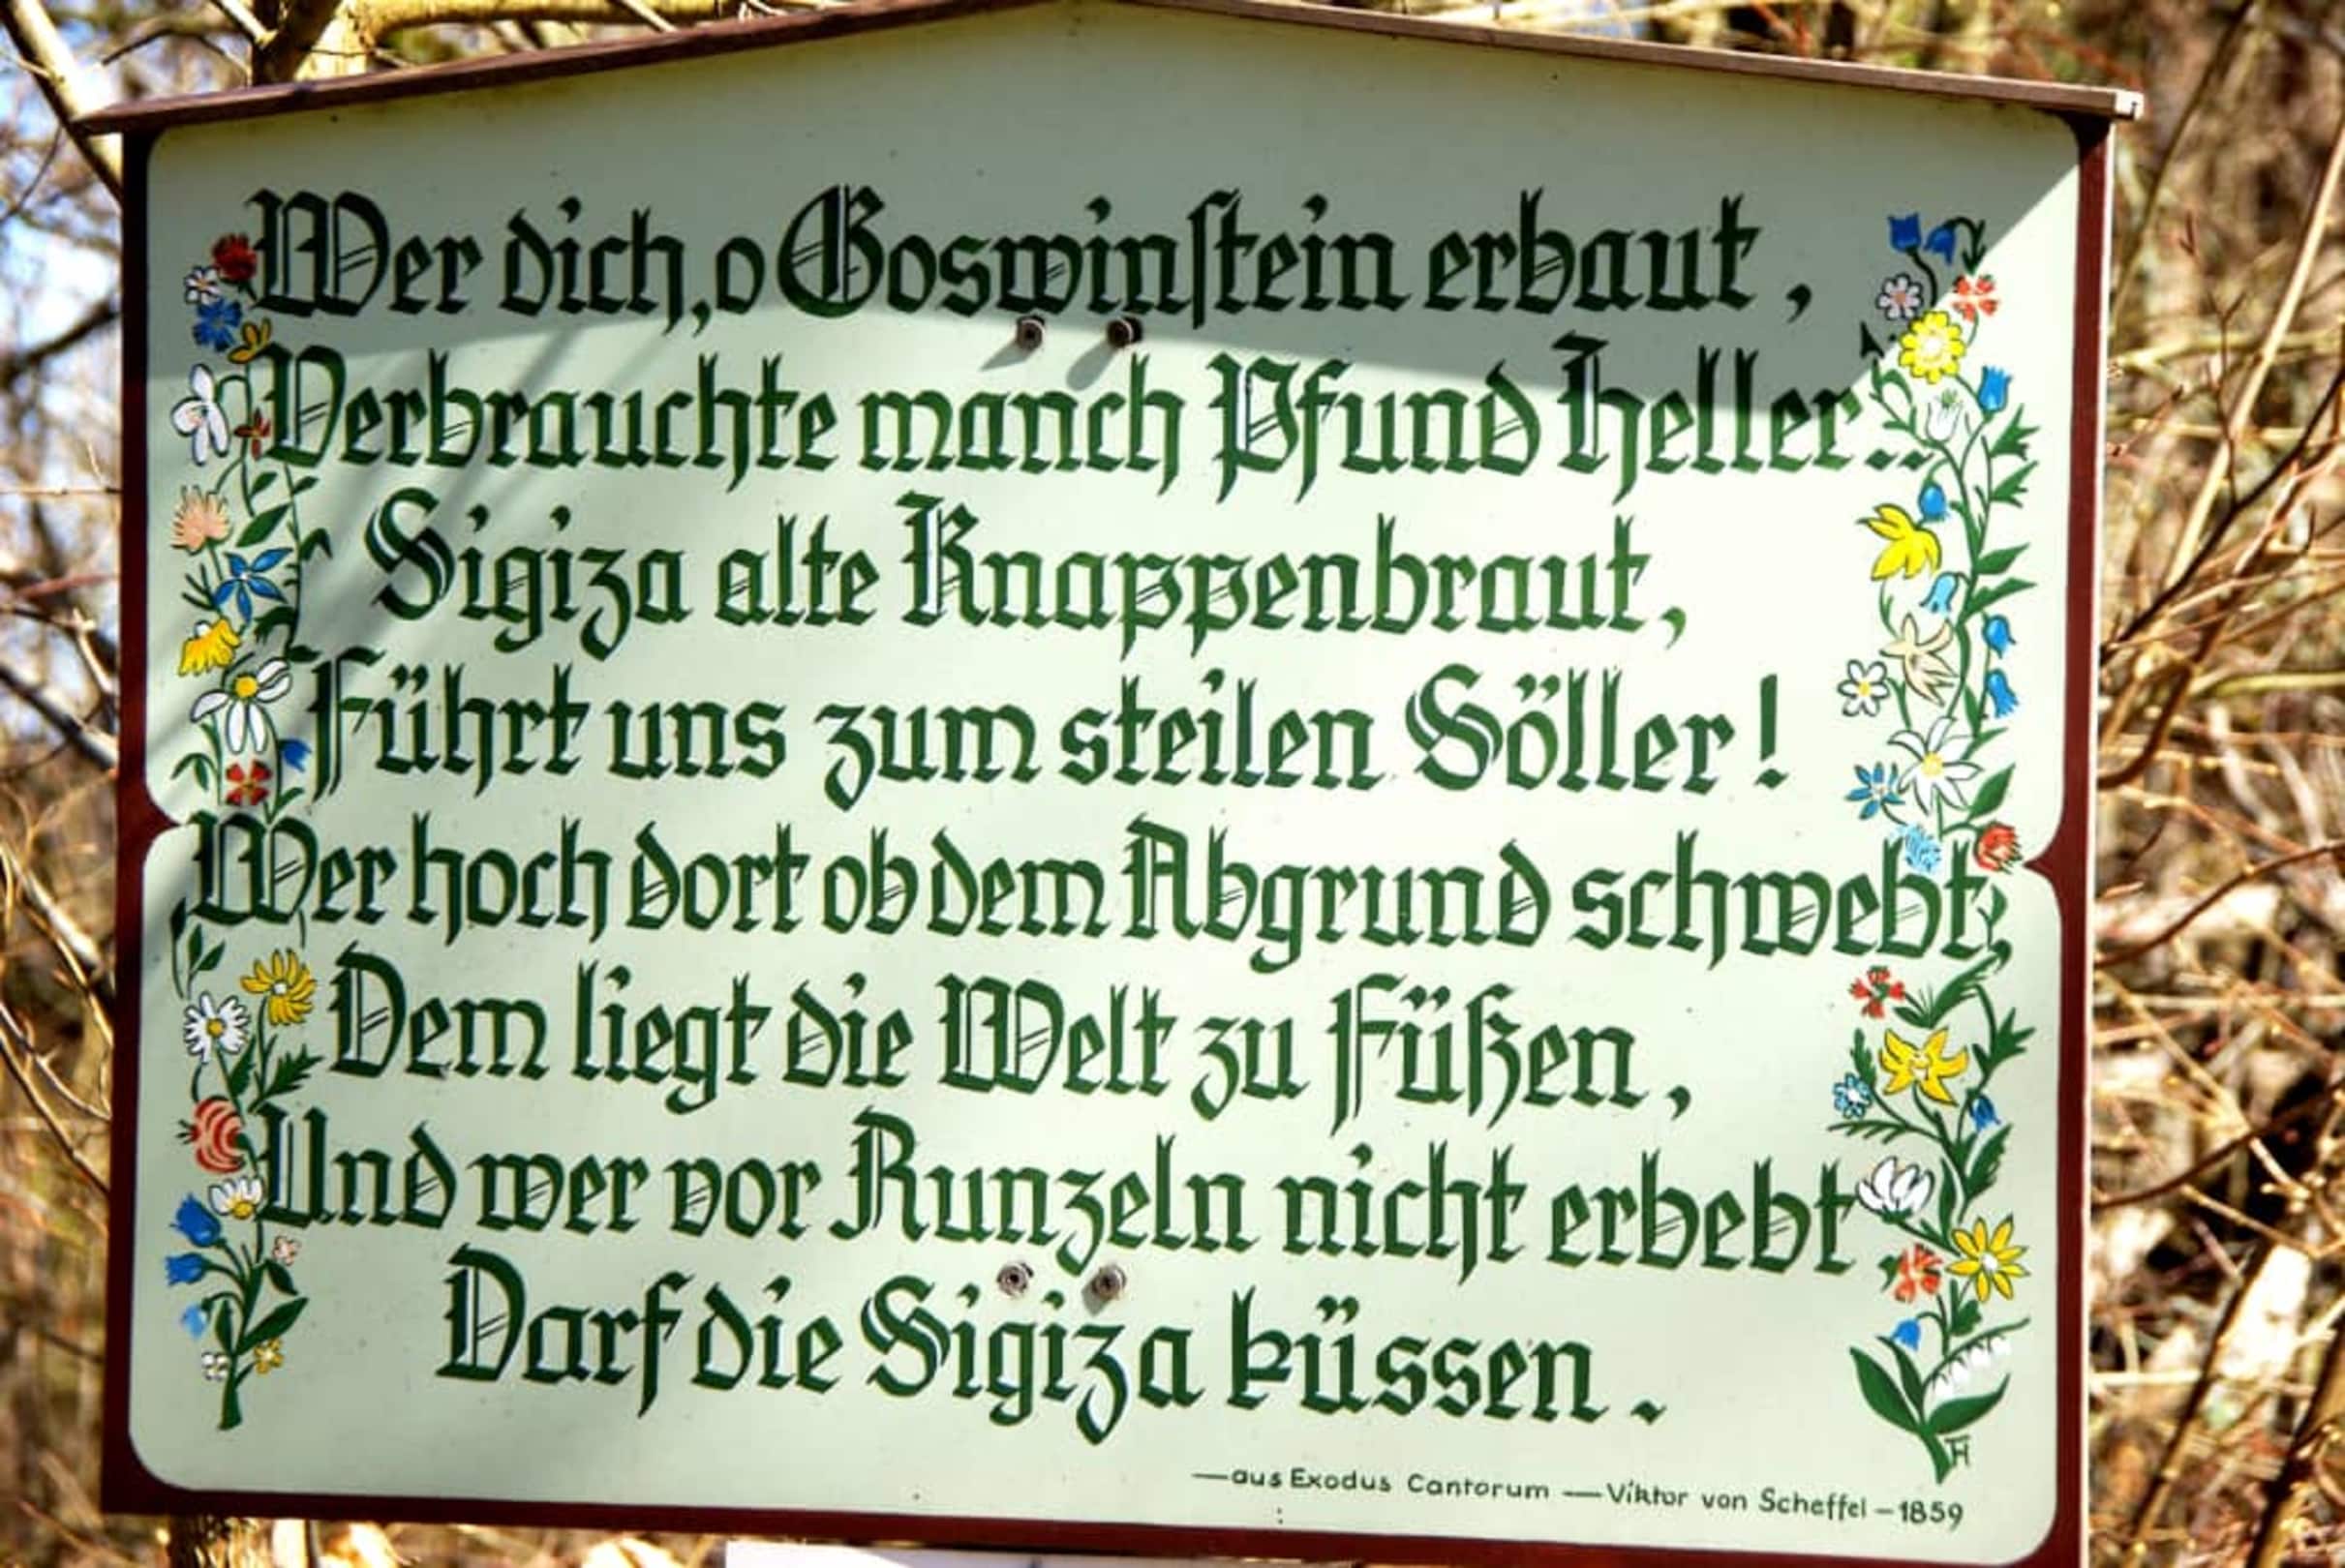 Wer dich, o Goswinſtein erbaut,
Verbrauchte manch Pfund Heller..
Sigiza alte Knappenbraut,
Führt uns zum steilen Söller!
Wer hoch dort ob dem Abgrund schwebt,
Dem liegt die Welt zu Füßen,
Und wer vor Runzeln nicht erbebt
Darf die Sigiza küssen.
—aus Exodus Cantorum —Viktor von Scheffel – 1859